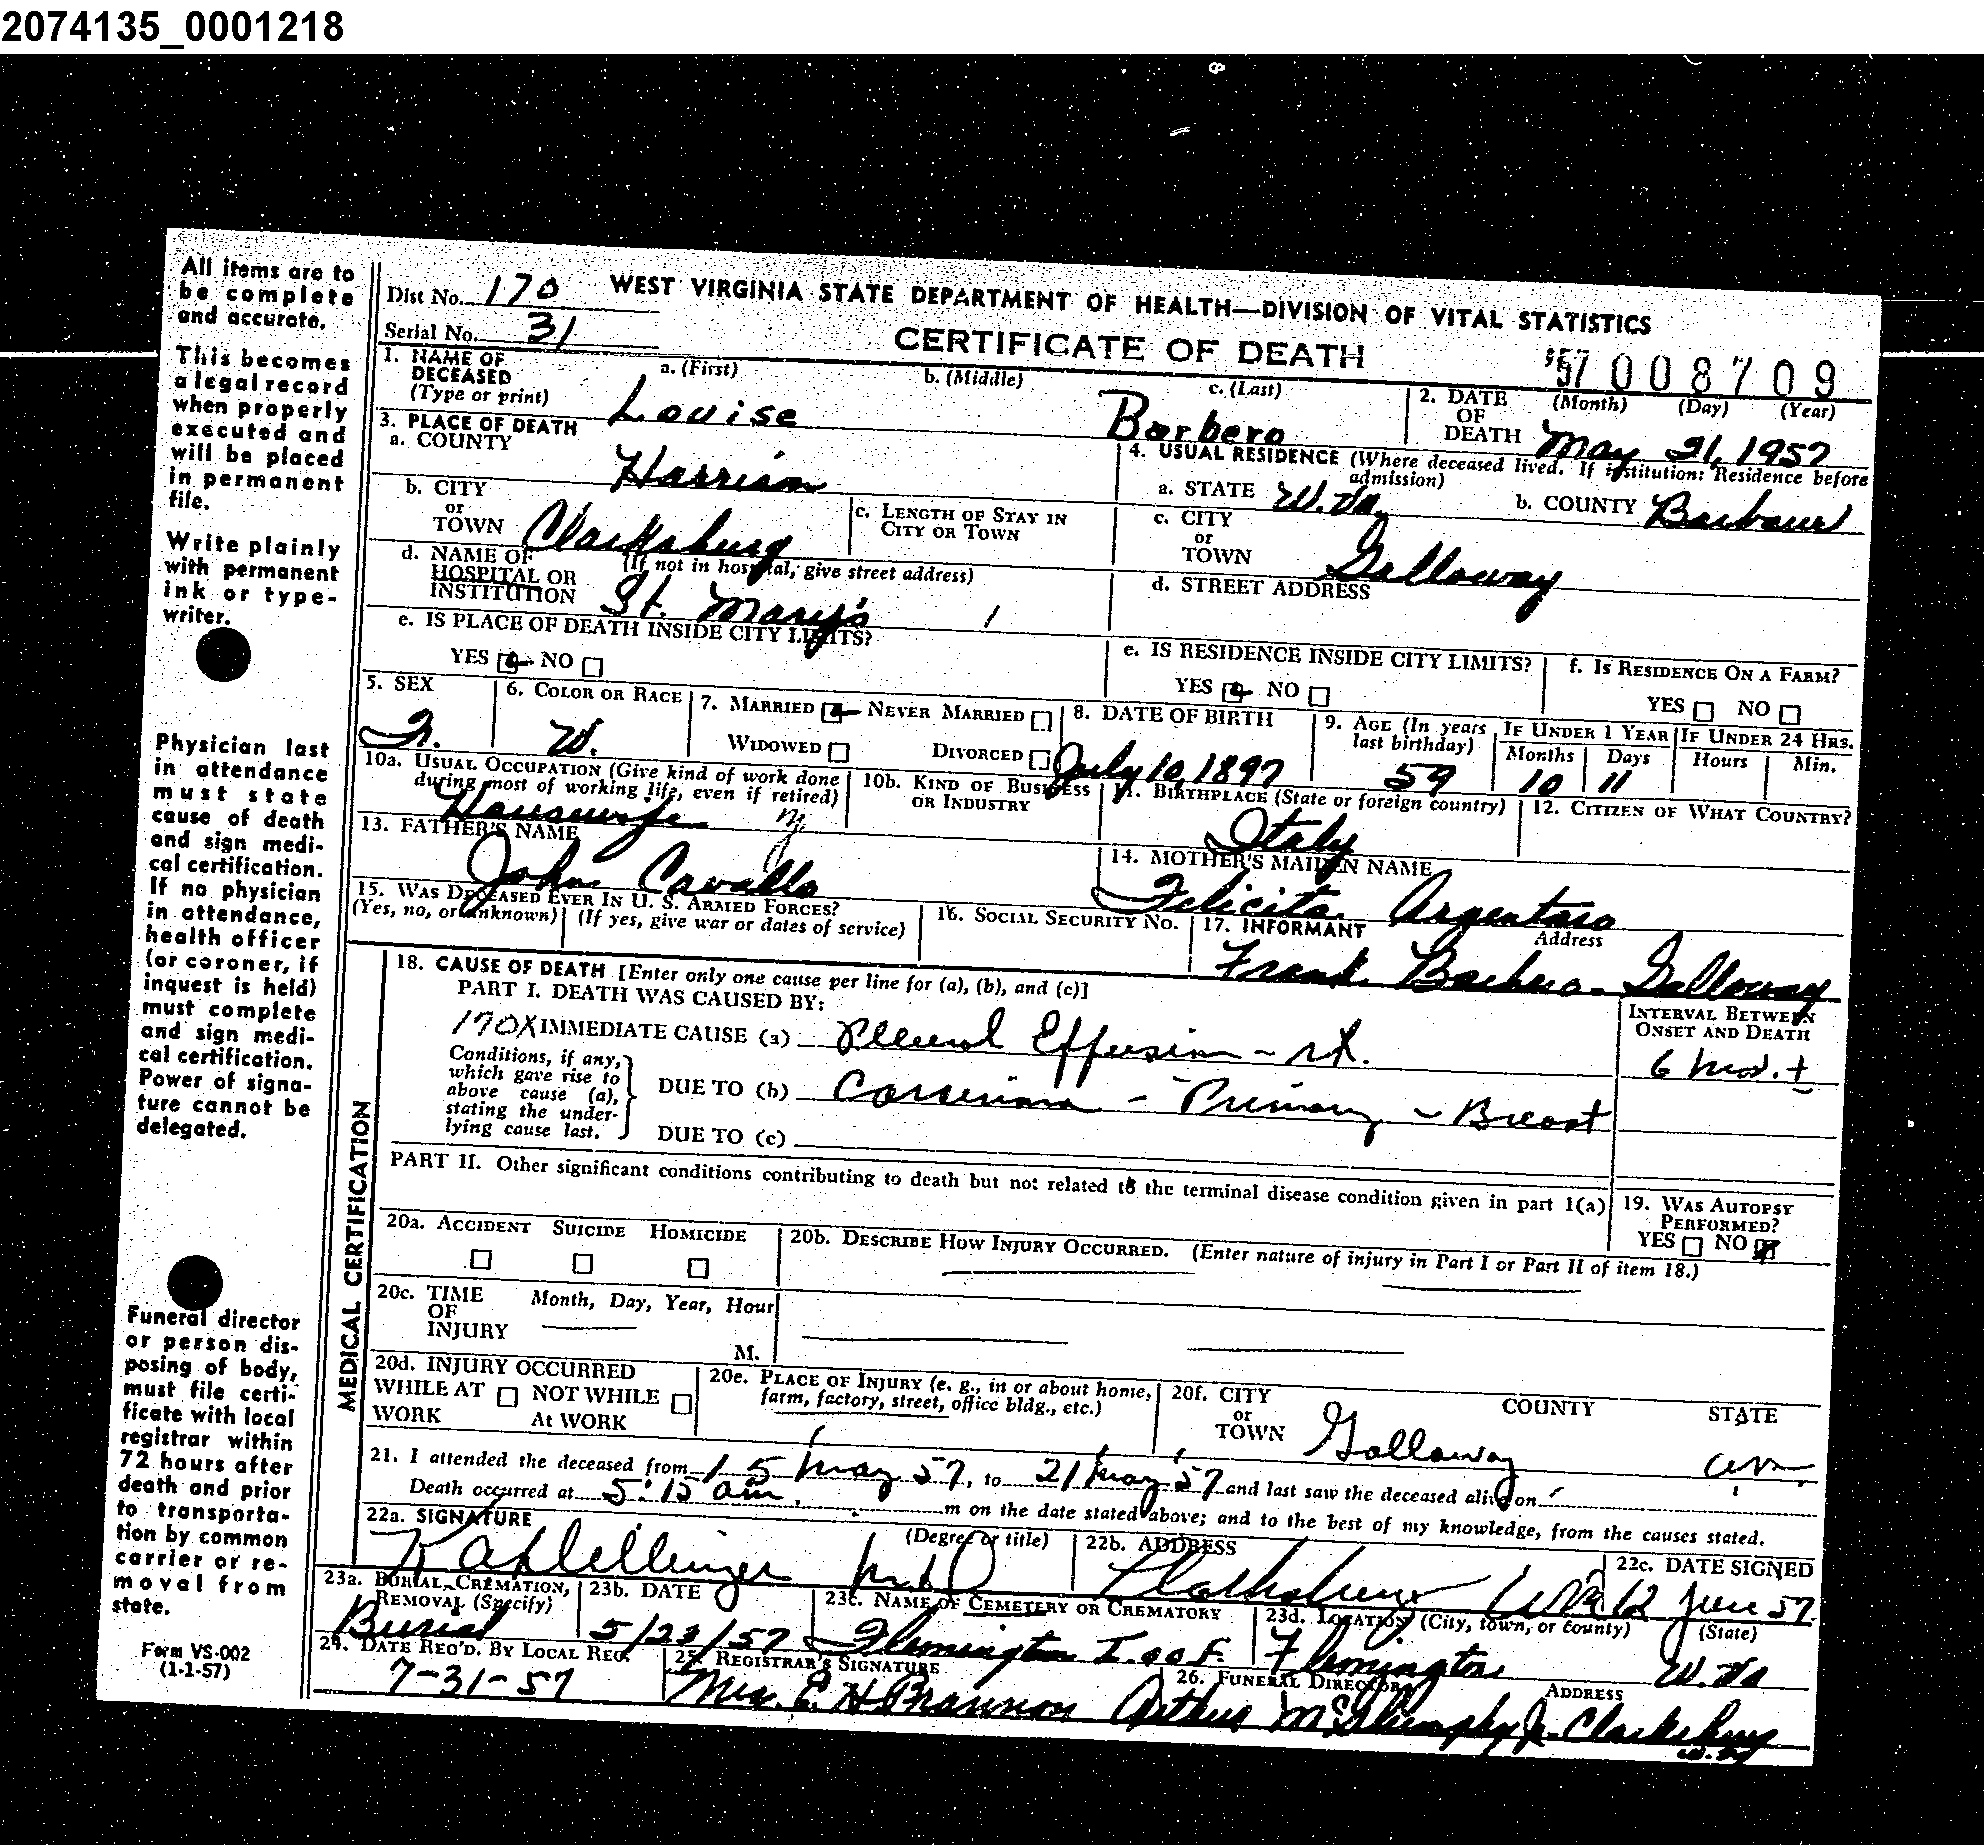 2074135_0001218
All items are to
be complete
and accurate.
This becomes
a legal record
when properly
executed and
will be placed
in permanent
file.
Write plainly
with permanent
ink or type-
writer.
Physician last
in attendance
must state
cause of death
and sign medi-
cal certification.
If no physician
in attendance,
health officer
(or coroner, if
inquest is held)
must complete
and sign medi-
cal certification.
Power of signa-
ture cannot be
delegated.
Funeral director
or person dis-
posing of body,
must file certi-
ficate with local
registrar within
72 hours after
death and prior
to transporta-
tion by common
carrier or re-
moval from
state.
Form VS-002
(1-1-57)
Dist No. 170 WEST VIRGINIA STATE DEPARTMENT OF HEALTH—DIVISION OF VITAL STATISTICS
Serial No. 31 CERTIFICATE OF DEATH 57 008709
1. NAME OF DECEASED (Type or print) a. (First) Louise b. (Middle) c. (Last) Barbero
2. DATE OF DEATH (Month) (Day) (Year) May 21, 1957
3. PLACE OF DEATH
a. COUNTY Harrison
4. USUAL RESIDENCE (Where deceased lived. If institution: Residence before admission)
a. STATE W. Va. b. COUNTY Barbour
b. CITY or TOWN Clarksburg c. LENGTH OF STAY IN CITY OR TOWN
c. CITY or TOWN Galloway
d. NAME OF HOSPITAL OR INSTITUTION (If not in hospital, give street address) St. Mary's
d. STREET ADDRESS
e. IS PLACE OF DEATH INSIDE CITY LIMITS?
YES NO
e. IS RESIDENCE INSIDE CITY LIMITS?
YES NO
f. IS RESIDENCE ON A FARM?
YES NO
5. SEX F.
6. COLOR OR RACE W.
7. MARRIED NEVER MARRIED
WIDOWED DIVORCED
8. DATE OF BIRTH July 10, 1897
9. AGE (In years last birthday) 59
IF UNDER 1 YEAR Months 10 Days 11
IF UNDER 24 HRS. Hours Min.
10a. USUAL OCCUPATION (Give kind of work done during most of working life, even if retired) Housewife
10b. KIND OF BUSINESS OR INDUSTRY
11. BIRTHPLACE (State or foreign country) Italy
12. CITIZEN OF WHAT COUNTRY?
13. FATHER'S NAME John Cavallo
14. MOTHER'S MAIDEN NAME Felicita Argentaro
15. WAS DECEASED EVER IN U. S. ARMED FORCES?
(Yes, no, or unknown) (If yes, give war or dates of service)
16. SOCIAL SECURITY NO.
17. INFORMANT Address
Frank Barbero - Galloway
MEDICAL CERTIFICATION
18. CAUSE OF DEATH [Enter only one cause per line for (a), (b), and (c)]
PART I. DEATH WAS CAUSED BY:
INTERVAL BETWEEN ONSET AND DEATH
170X IMMEDIATE CAUSE (a) Pleural Effusion - rt. 6 mos. ±
Conditions, if any, which gave rise to above cause (a), stating the underlying cause last.
DUE TO (b) Carcinoma - Primary - Breast
DUE TO (c)
PART II. Other significant conditions contributing to death but not related to the terminal disease condition given in part I(a)
19. WAS AUTOPSY PERFORMED?
YES NO
20a. ACCIDENT SUICIDE HOMICIDE
20b. DESCRIBE HOW INJURY OCCURRED. (Enter nature of injury in Part I or Part II of item 18.)
20c. TIME OF INJURY Month, Day, Year, Hour
M.
20d. INJURY OCCURRED
WHILE AT WORK NOT WHILE AT WORK
20e. PLACE OF INJURY (e. g., in or about home, farm, factory, street, office bldg., etc.)
20f. CITY or TOWN COUNTY STATE
Galloway
21. I attended the deceased from 15 May 57, to 21 May 57 and last saw the deceased alive on
Death occurred at 5:15 am. m on the date stated above; and to the best of my knowledge, from the causes stated.
22a. SIGNATURE (Degree or title) MD
22b. ADDRESS Clarksburg WVa
22c. DATE SIGNED 12 June 57
23a. BURIAL, CREMATION, REMOVAL (Specify) Burial
23b. DATE 5/23/57
23c. NAME OF CEMETERY OR CREMATORY Flemington I.O.O.F.
23d. LOCATION (City, town, or county) (State) Flemington W. Va
24. DATE REC'D. BY LOCAL REG. 7-31-57
25. REGISTRAR'S SIGNATURE Mrs. E. H. Brannon
26. FUNERAL DIRECTOR ADDRESS
Arthur McGlumphy Jr. Clarksburg
W. Va